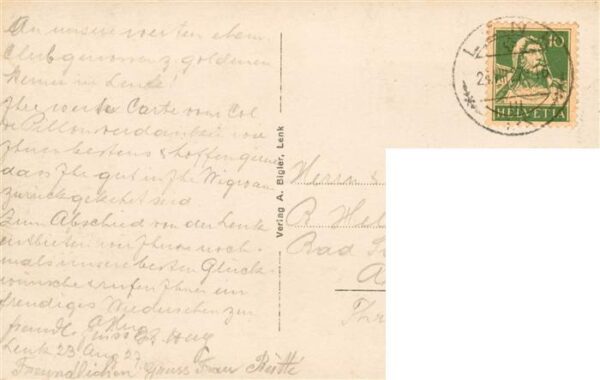 An unsere werten ehem.
Clubgenossen z. goldenen
in Lenk!
Ihre werte Carte vom Col
de Pillon verdanken wir
Ihnen bestens & hoffen gerne
dass Ihr gut in Ihr Wigwam
zurückgekehrt seid
Zum Abschied von der Lenk
entbieten wir Ihnen noch-
mals unsere besten Glück-
wünsche & rufen Ihnen ein
freudiges Wiedersehen zu
freundl.
Lenk 23 Aug 27
Freundlichen Gruss Frau
Verlag A. Bigler, Lenk
10
HELVETIA
Herrn &
R
Bad